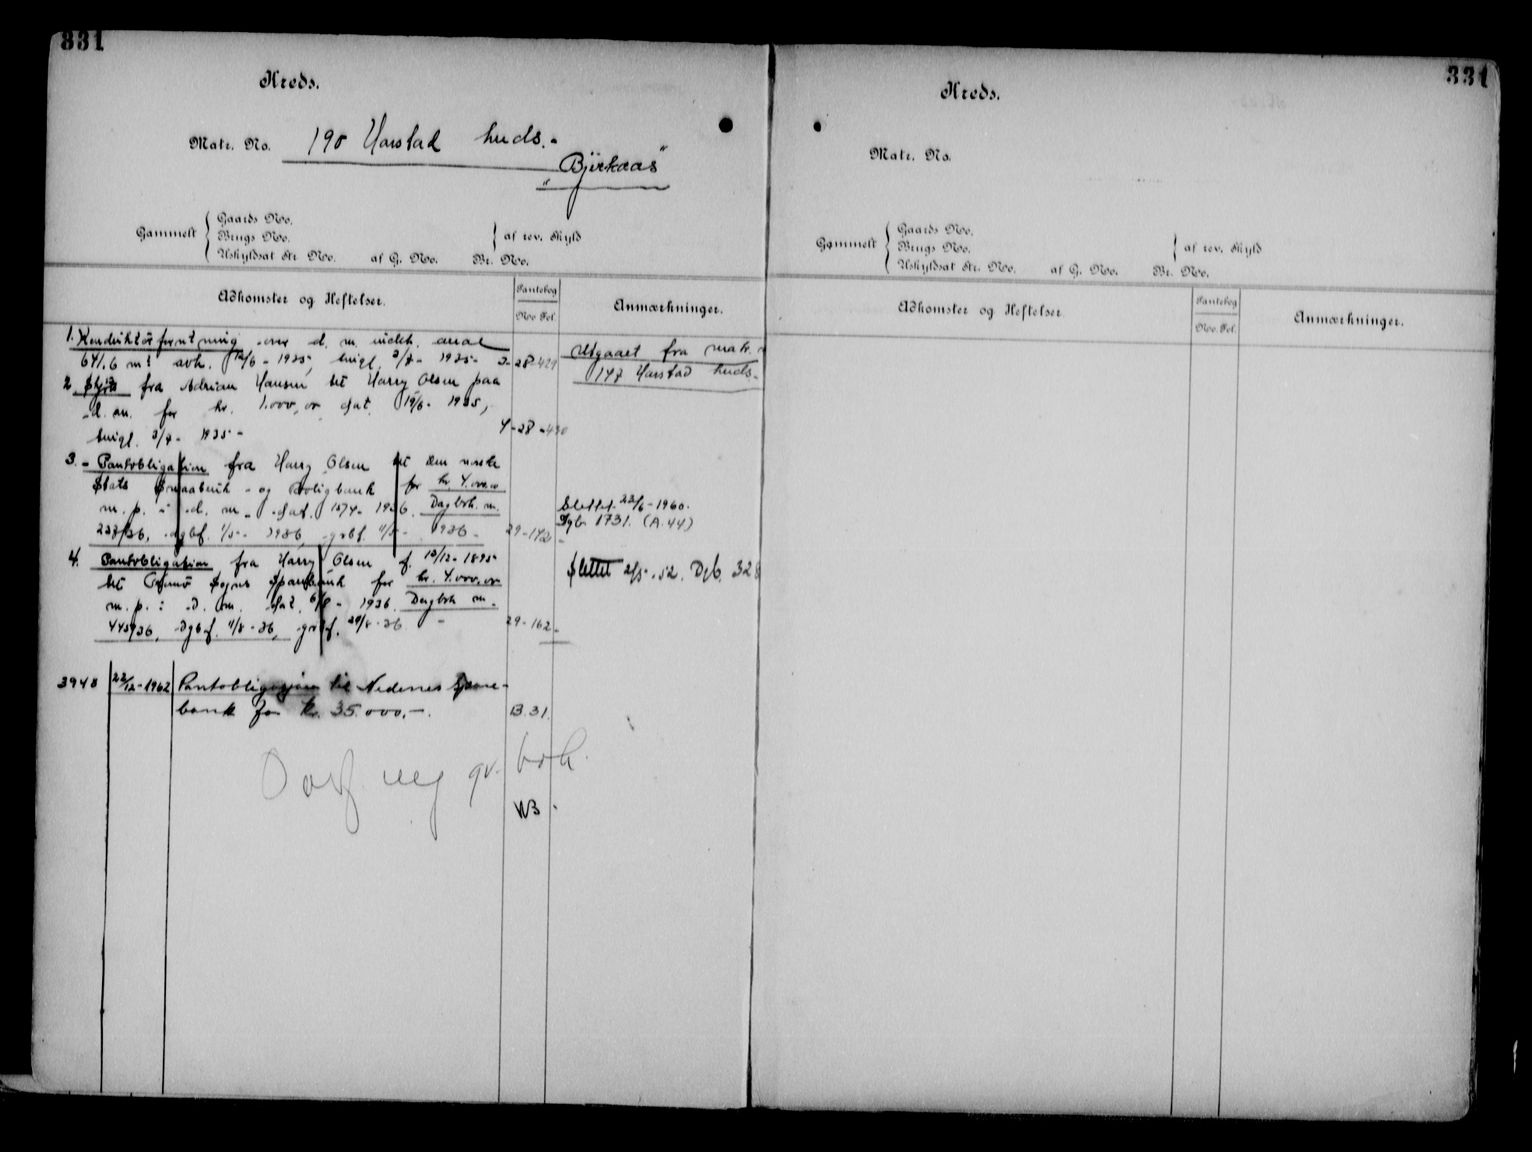 331
Kreds.
Matr. No. 190 Harstad huds.
"Björkaas"
Gammelt
Gaards No.
Brugs No.
Uskyldsat Str. No. af G. No. Br. No.
af rev. Skyld
Adkomster og Heftelser.
Pantebog
No. Fol.
Anmærkninger.
1. over d. m. areal
641.6 m² avh. 12/6 - 1935, tingl. 2/7 - 1935 - 28-429
Utgaaet fra matr.
147 Harstad huds.
2. Skjöte fra Adrian Hansen til Harry Olsen paa
d. m. for kr. 1.000,00 dat. 19/6 - 1935,
tingl. 2/7 - 1935 - 28-430
3. Pantobligation fra Harry Olsen til Den norske
Stats Smaabruk - og Boligbank for kr. 4.000,00
m. p. i d. m. dat. 15/4 - 1936. Dagbok nr.
dgbf. 1/5 - 1936, grbf. 1936 - 29-142
Slettet 22/6 - 1960.
Dgb. 1731. (A.44)
4. Pantobligation fra Harry Olsen f. 13/12 - 1895
til Sogns Sparebank for kr. 4.000,00
m. p. i d. m. dat. 6/8 - 1936. Dagbok nr.
443/36, dgbf. 11/8 - 36, grbf. 20/8 - 36 - 29-162
Slettet 2/5 - 52. Dgb. 328
3948 22/12 - 1962 Pantobligasjon til Nedenes Spare-
bank for kr. 35.000,-. B.31.
bok.
NB
331
Kreds.
Matr. No.
Gammelt
Gaards No.
Brugs No.
Uskyldsat Str. No. af G. No. Br. No.
af rev. Skyld
Adkomster og Heftelser.
Pantebog
No. Fol.
Anmærkninger.